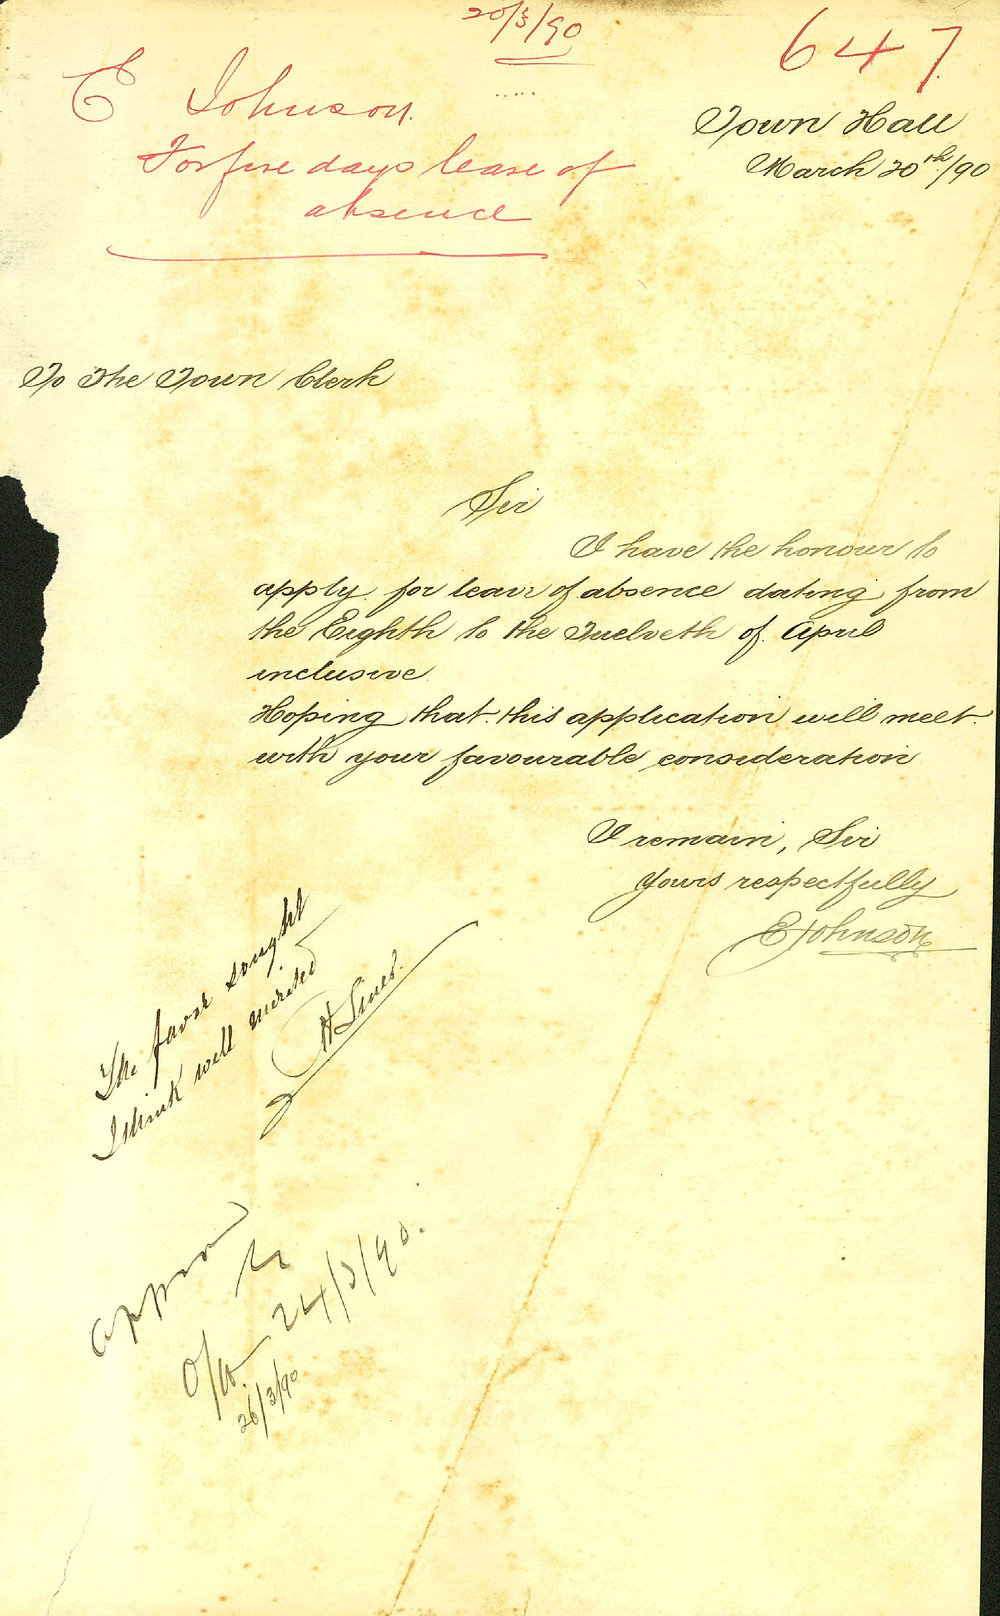 20/3/90
647
E Johnson.
For five days leave of
absence
Town Hall
March 20th/90
To The Town Clerk
Sir
I have the honour to
apply for leave of absence dating from
the Eighth to the Twelveth of April
inclusive.
Hoping that this application will meet
with your favourable consideration
I remain, Sir
Yours respectfully
E Johnson
The favor sought
I think well merited
Approved
24/3/90.
26/3/90